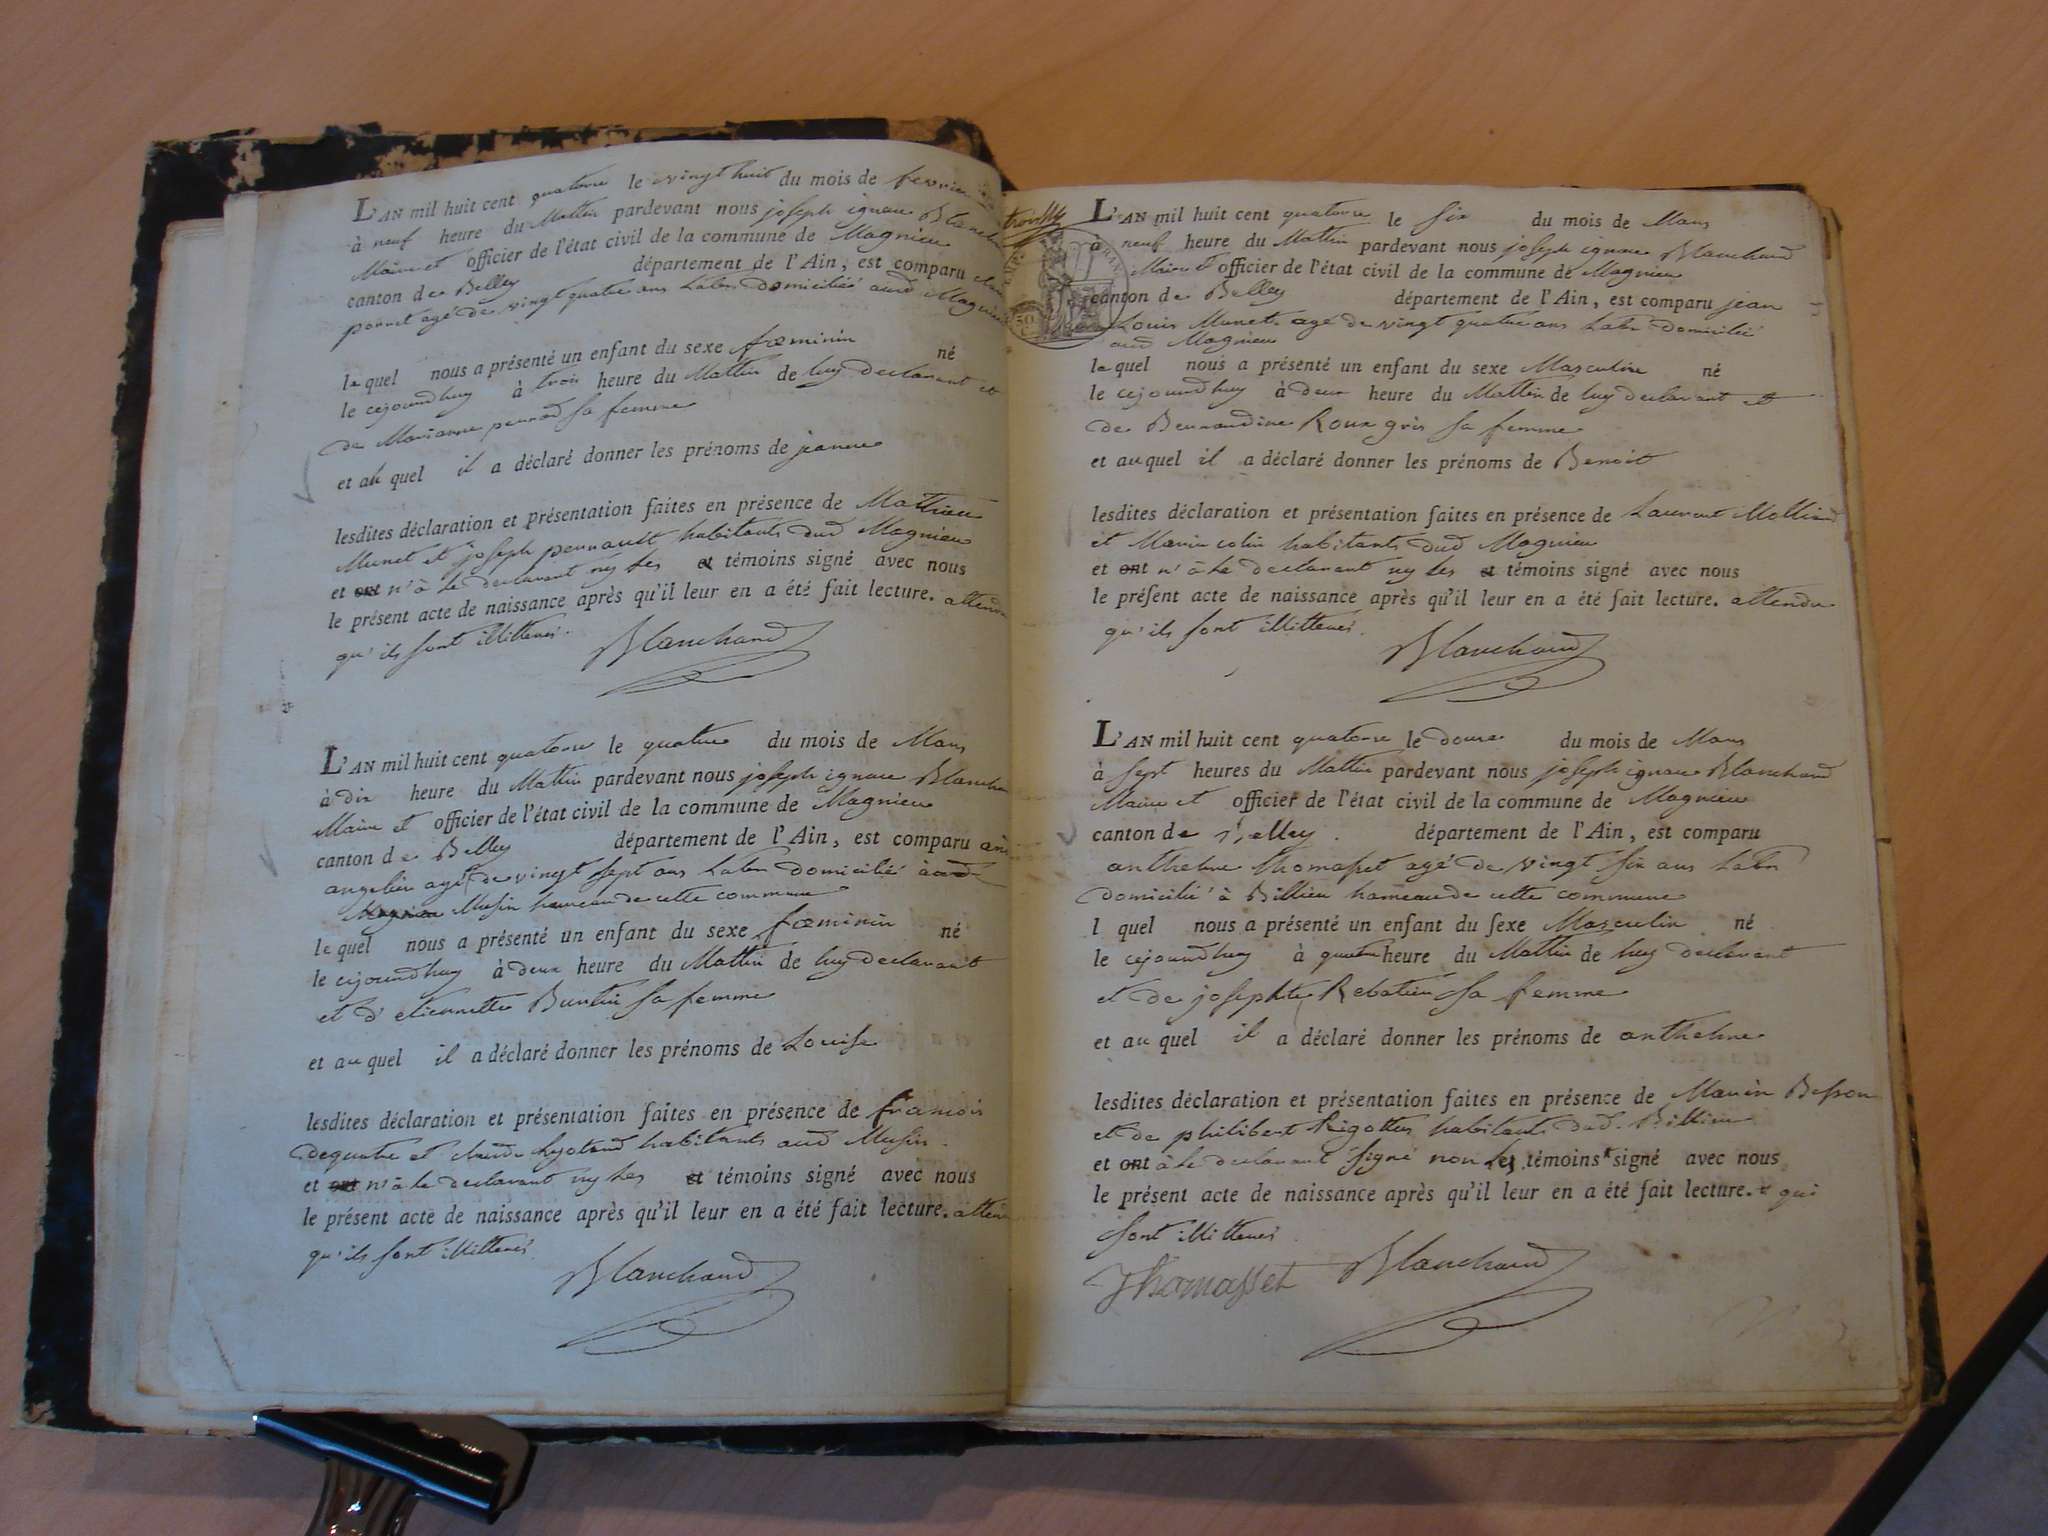 L'AN mil huit cent quatorze le vingt huit du mois de fevrier
à neuf heure du Mattin pardevant nous joseph ignace Blanchard
Maire et officier de l'état civil de la commune de Magnieu
canton de Belley département de l'Ain, est comparu
ponnet agé de vingt quatre ans Labr domicilié aud Magnieu
le quel nous a présenté un enfant du sexe fœminin né
le cejourdhuy à trois heure du Mattin de luy declarant et
de Marianne sa femme
et au quel il a déclaré donner les prénoms de jeanne
lesdites déclaration et présentation faites en présence de Mathieu
Munet et joseph habitants dud Magnieu
et ont n'à le declarant ny les et témoins signé avec nous
le présent acte de naissance après qu'il leur en a été fait lecture. attendu
qu'ils sont illitterés.
Blanchard
L'AN mil huit cent quatorze le quatre du mois de Mars
à dix heure du Mattin pardevant nous joseph ignace Blanchard
Maire et officier de l'état civil de la commune de Magnieu
canton de Belley département de l'Ain, est comparu
angelier agé de vingt sept ans Labr domicilié
Magnieu Musin hameau de cette commune
le quel nous a présenté un enfant du sexe fœminin né
le cejourdhuy à deux heure du Mattin de luy declarant
et d'etiennette Burtin sa femme
et au quel il a déclaré donner les prénoms de Louise
lesdites déclaration et présentation faites en présence de francois
dequatre et claude habitants aud Musin
et ont n'à le declarant ny les et témoins signé avec nous
le présent acte de naissance après qu'il leur en a été fait lecture. attendu
qu'ils sont illitterés
Blanchard
L'AN mil huit cent quatorze le six du mois de Mars
à neuf heure du Mattin pardevant nous joseph ignace Blanchard
Maire et officier de l'état civil de la commune de Magnieu
canton de Belley département de l'Ain, est comparu jean
Louis Munet agé de vingt quatre ans Labr domicilié
aud Magnieu
le quel nous a présenté un enfant du sexe Masculin né
le cejourdhuy à deux heure du Mattin de luy declarant et
de Bernardine Roux gris sa femme
et au quel il a déclaré donner les prénoms de Benoit
lesdites déclaration et présentation faites en présence de Laurent Molliard
et Marin colin habitants dud Magnieu
et ont n'à le declarant ny les et témoins signé avec nous
le présent acte de naissance après qu'il leur en a été fait lecture. attendu
qu'ils sont illitterés.
Blanchard
L'AN mil huit cent quatorze le douze du mois de Mars
à sept heures du Mattin pardevant nous joseph ignace Blanchard
Maire et officier de l'état civil de la commune de Magnieu
canton de Belley. département de l'Ain, est comparu
anthelme thomasset agé de vingt six ans Labr
domicilié à Billieu hameau de cette commune
l quel nous a présenté un enfant du sexe Masculin né
le cejourdhuy à quatre heure du Mattin de luy declarant
et de josephte Rebatieu sa femme
et au quel il a déclaré donner les prénoms de anthelme
lesdites déclaration et présentation faites en présence de Marin Besson
et de philibert Rigottier habitants dud. Billieu
et ont à le declarant signé non les témoins signé avec nous
le présent acte de naissance après qu'il leur en a été fait lecture. qui
sont illitterés
Thomasset Blanchard